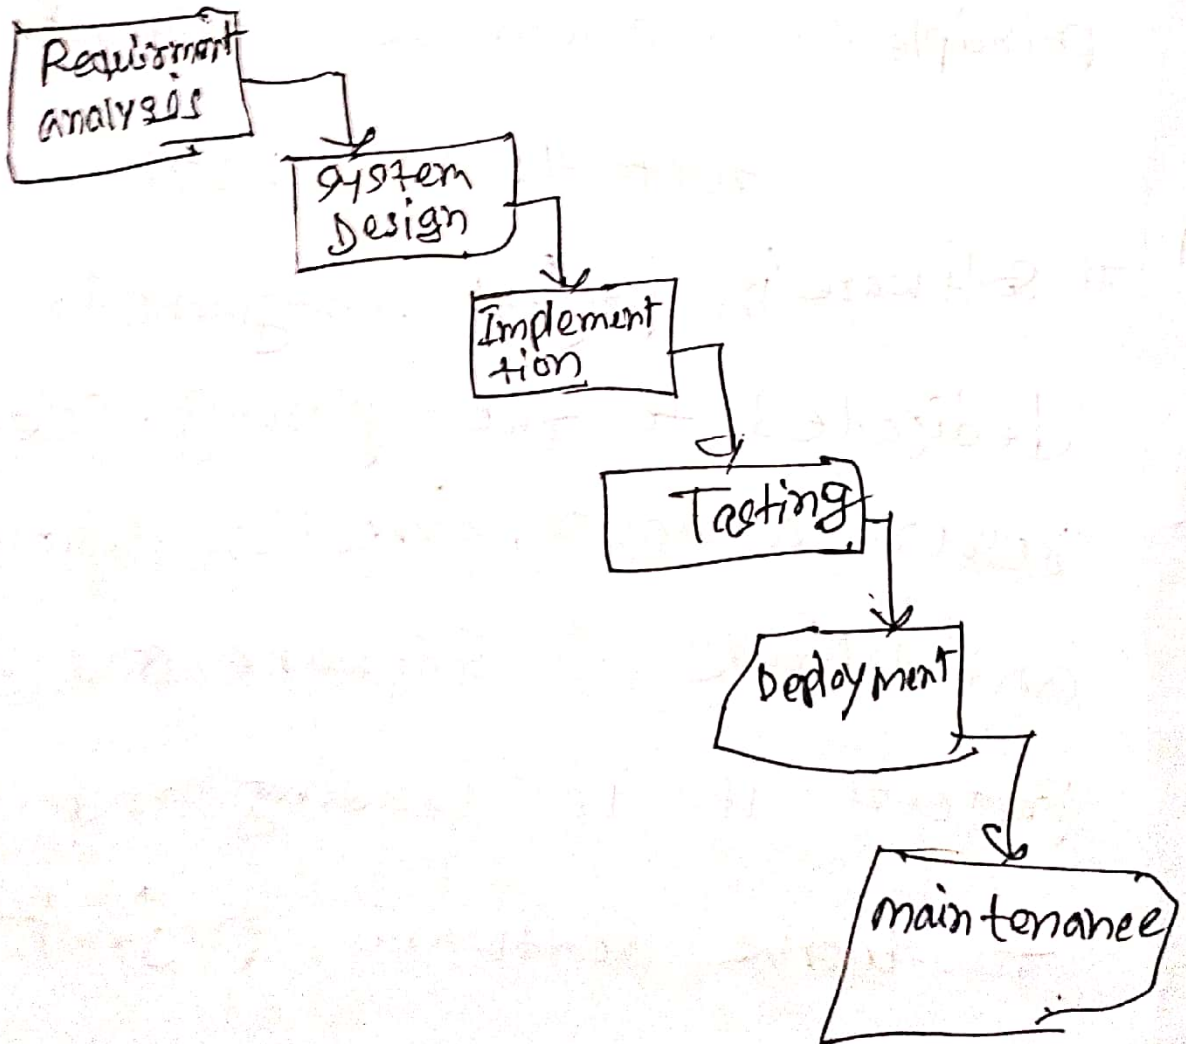 Requirment
analysis
System
Design
Implement
tion
Tasting
Deployment
maintenance